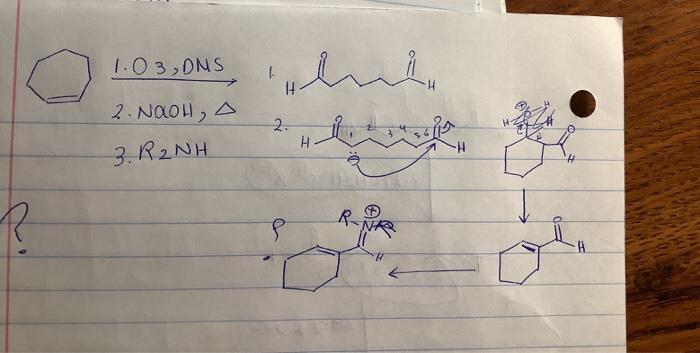 1. O3, DMS
2. NaOH, Δ
3. R2NH
1.
O
O
H
H
2.
O
O
H
1 2 3 4 5 6
H
⊖
O
H
O
H
?
?
R-N
⊕
R
H